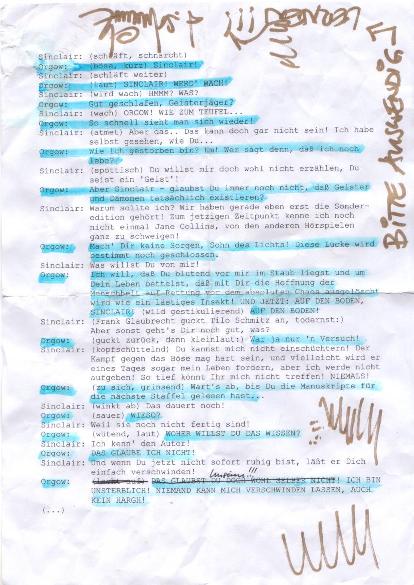 BITTE AUSWENDIG
Sinclair: (schläft, schnarcht)
Orgow: (böse, kurz) Sinclair!
Sinclair: (schläft weiter)
Orgow: (laut) SINCLAIR! WERD' WACH!
Sinclair: (wird wach) HMMM? WAS?
Orgow: Gut geschlafen, Geisterjäger?
Sinclair: (wach) ORGOW! WIE ZUM TEUFEL...
Orgow: So schnell sieht man sich wieder!
Sinclair: (atmet) Aber das.. Das kann doch gar nicht sein! Ich habe
selbst gesehen, wie Du...
Orgow: Wie ich gestorben bin? Hm! Wer sagt denn, daß ich noch
lebe?
Sinclair: (spöttisch) Du willst mir doch wohl nicht erzählen, Du
seist ein 'Geist'!
Orgow: Aber Sinclair - glaubst Du immer noch nicht, daß Geister
und Dämonen tatsächlich existieren?
Sinclair: Warum sollte ich? Wir haben gerade eben erst die Sonder-
edition gehört! Zum jetzigen Zeitpunkt kenne ich noch
nicht einmal Jane Collins, von den anderen Hörspielen
ganz zu schweigen!
Orgow: Mach' Dir keine Sorgen, Sohn des Lichts! Diese Lücke wird
bestimmt noch geschlossen.
Sinclair: Was willst Du von mir!
Orgow: Ich will, daß Du blutend vor mir im Staub liegst und um
Dein Leben bettelst, daß mit Dir die Hoffnung der
Menschheit auf Rettung vor dem absoluten Chaos ausgelöscht
wird wie ein lästiges Insekt! UND JETZT: AUF DEN BODEN,
SINCLAIR! (wild gestikulierend) AUF DEN BODEN!
Sinclair: (Frank Glaubrecht guckt Tilo Schmitz an, todernst:)
Aber sonst geht's Dir noch gut, was?
Orgow: (guckt zurück, dann kleinlaut:) War ja nur 'n Versuch!
Sinclair: (kopfschüttelnd) Du kannst mich nicht einschüchtern! Der
Kampf gegen das Böse mag hart sein, und vielleicht wird er
eines Tages sogar mein Leben fordern, aber ich werde nicht
aufgeben! So tief könnt Ihr mich nicht treffen! NIEMALS!
Orgow: (zu sich, grinsend) Wart's ab, bis Du die Manuskripte für
die nächste Staffel gelesen hast...
Sinclair: (winkt ab) Das dauert noch!
Orgow: (sauer) WIESO?
Sinclair: Weil sie noch nicht fertig sind!
Orgow: (wütend, laut) WOHER WILLST DU DAS WISSEN?
Sinclair: Ich kenn' den Autor!
Orgow: DAS GLAUBE ICH NICHT!
Sinclair: Und wenn Du jetzt nicht sofort ruhig bist, läßt er Dich
einfach verschwinden!
Orgow: (lacht auf) DAS GLAUBST DU DOCH WOHL SELBER NICHT! ICH BIN
UNSTERBLICH! NIEMAND KANN MICH VERSCHWINDEN LASSEN, AUCH
KEIN HARGH!
(...)